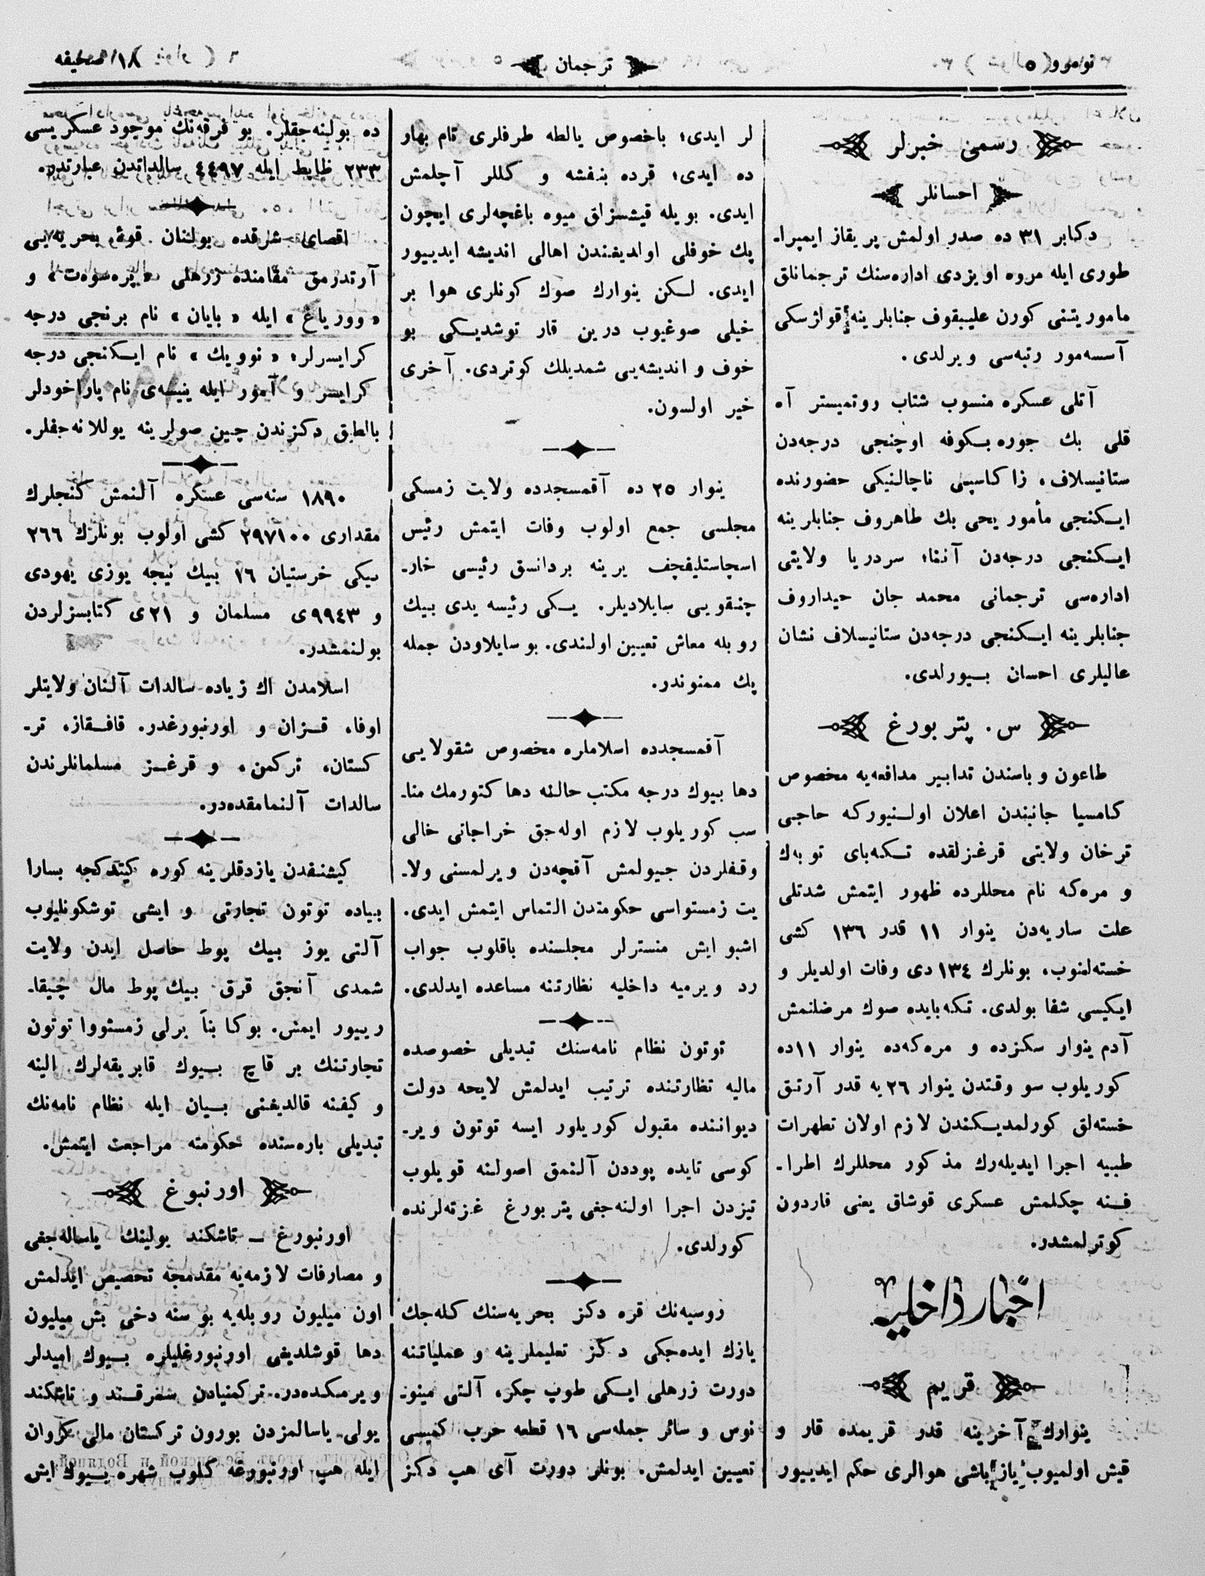 نومرو ٥
ترجمان
صحیفه ١٨
رسمی خبرلر
احسانلر
دكابر ٣١ ده صدر اولمش بر یقاز ایمپرا۔
طوری ایله مروه اویزدی اداره‌سنك ترجمانلق
مأموریتنی كورن علیبقوف جنابلرینه قواژسكی
آسسه‌مور رتبه‌سی ویرلدی.
آتلی عسكره منسوب شتاب روتمیستر آه
قلی بك جوره بكوفه اوچنجی درجه‌دن
ستانیسلاف، زاكاسپی ناچالنیكی حضورنده
ایكنجی مأمور یحی بك طاهروف جنابلرینه
ایكنجی درجه‌دن آننا؛ سردریا ولایتی
اداره‌سی ترجمانی محمد جان حیداروف
جنابلرینه ایكنجی درجه‌دن ستانیسلاف نشان
عالیلری احسان بیورلدی.
س. پتربورغ
طاعون وباسندن تدابیر مدافعه‌یه مخصوص
كامسیا جانبندن اعلان اولنیوركه حاجی
ترخان ولایتی قرغزلقده تكه‌بای توبه‌ك
و مره‌كه نام محللرده ظهور ایتمش شدتلی
علت ساریه‌دن ینوار ١١ قدر ١٣٦ كشی
خسته‌لنوب، بونلرك ١٣٤ دی وفات اولدیلر و
ایكیسی شفا بولدی. تكه‌بایده صوك مرضلنمش
آدم ینوار سكزده و مره‌كه‌ده ینوار ١١ده
كوریلوب سو وقتدن ینوار ٢٦ یه قدر آرتق
خسته‌لق كورلمدیكندن لازم اولان تطهرات
طبیه اجرا ایدیله‌رك مذكور محللرك اطرا۔
فنه چكلمش عسكری قوشاق یعنی قاردون
كوترلمشدر.
اخبار داخلیه
قریم
ینوارك آخرینه قدر قریمده قار و
قیش اولمیوب یاز باشی هوالری حكم ایدییور
لر ایدی؛ باخصوص یالطه طرفلری تام بهار
ده ایدی؛ قرده بنفشه و كللر آچلمش
ایدی. بویله قیشسزلق میوه باغچه‌لری ایچون
پك خوفلی اولدیغندن اهالی اندیشه ایدییور
ایدی. لكن ینوارك صوك كونلری هوا بر
خیلی صوغیوب درین قار توشدیكی بو
خوف و اندیشه‌یی شمدیلك كوتردی. آخری
خیر اولسون.
ینوار ٢٥ ده آقمسجدده ولایت زمسكی
مجلسی جمع اولوب وفات ایتمش رئیس
اسچاستلیفچف یرینه بردانسق رئیسی خار۔
چنقویی سایلادیلر. یكی رئیسه یدی بیك
روبله معاش تعیین اولندی. بو سایلاودن جمله
پك ممنوندر.
آقمسجدده اسلاملره مخصوص شقولایی
دها بیوك درجه مكتب حالنه دها كتورمك منا۔
سب كوریلوب لازم اوله‌جق خراجاتی خالی
وقفلردن جیولمش آقچه‌دن ویرلمسنی ولا۔
یت زمستواسی حكومتدن التماس ایتمش ایدی.
اشبو ایش منسترلر مجلسنده باقلوب جواب
رد ویرمیه داخلیه نظارتنه مساعده ایدلدی.
توتون نظام نامه‌سنك تبدیلی خصوصده
مالیه نظارتنده ترتیب ایدلمش لایحه دولت
دیواننده مقبول كوریلور ایسه توتون ویر۔
كوسی تایده پوددن آلنمق اصولنه قویلوب
تیزدن اجرا اولنه‌جغی پتربورغ غزته‌لرنده
كورلدی.
روسیه‌نك قره دكز بحریه‌سنك كله‌جك
یازك ایده‌جكی دكز تعلیملرینه و عملیاتنه
دورت زرهلی ایكی طوپ چكر، آلتی مینو۔
نوس و سائر جمله‌سی ١٦ قطعه حرب كمیسی
تعیین ایدلمش. بونلر دورت آی هپ دكز
ده بولینه‌جقلر. بو فرقه‌نك موجود عسكریسی
٢٣٣ ظابط ایله ٤٤٩٧ سالداتدن عبارتدر.
اقصای شرقده بولنان قوهٔ بحریه‌یی
آرتدرمق مقامنده زرهلی «پره‌سوه‌ت» و
«ووریاغ» ایله «بایان» نام برنجی درجه
كرایسرلر؛ «نوویك» نام ایكنجی درجه
كرایسر و آمور ایله ینیسه‌ی نام پاراخودلر
بالطبق دكزندن چین صولرینه یوللانه‌جقلر.
١٨٩٠ سنه‌سی عسكره آلنمش كنجلرك
مقداری ٢٩٧١٠٠ كشی اولوب بونلرك ٢٦٦
بیكی خرستیان ١٦ بیك نیجه یوزی یهودی
و ٩٩٤٣ی مسلمان و ٢١ی كتابسزلردن
بولنمشدر.
اسلامدن اك زیاده سالدات آلنان ولایتلر
اوفا، قزان و اورنبورغدر. قافقاز، تر۔
كستان، تركمن، و قرغز مسلمانلرندن
سالدات آلنمامقده‌در.
كیشنفدن یازدقلرینه كوره كیتدكجه بسارا
بیاده توتون تجارتی و ایشی توشكونلیوب
آلتی یوز بیك پوط حاصل ایدن ولایت
شمدی آنجق قرق بیك پوط مال چیقا۔
رییور ایمش. بوكا بناً یرلی زمستووا توتون
تجارتنك بر قاچ بیوك فابریقه‌لرك الینه
و كیفنه قالدیغنی بیان ایله نظام نامه‌نك
تبدیلی باره‌سنده حكومته مراجعت ایتمش.
اورنبوغ
اورنبورغ ــ تاشكند یولینك یاساله‌جغی
و مصارفات لازمه‌یه مقدمجه تحصیص ایدلمش
اون میلیون روبله‌یه بو سنه دخی بش میلیون
دها قوشلدیغی اورنبورغلیلره بیوك امیدلر
ویرمكده‌در. تركمنیادن سمرقند و تاشكند
یولی یاسالمزدن بورون تركستان مالی كروان
ایله هپ اورنبورغه كلوب شهره بیوك ایش